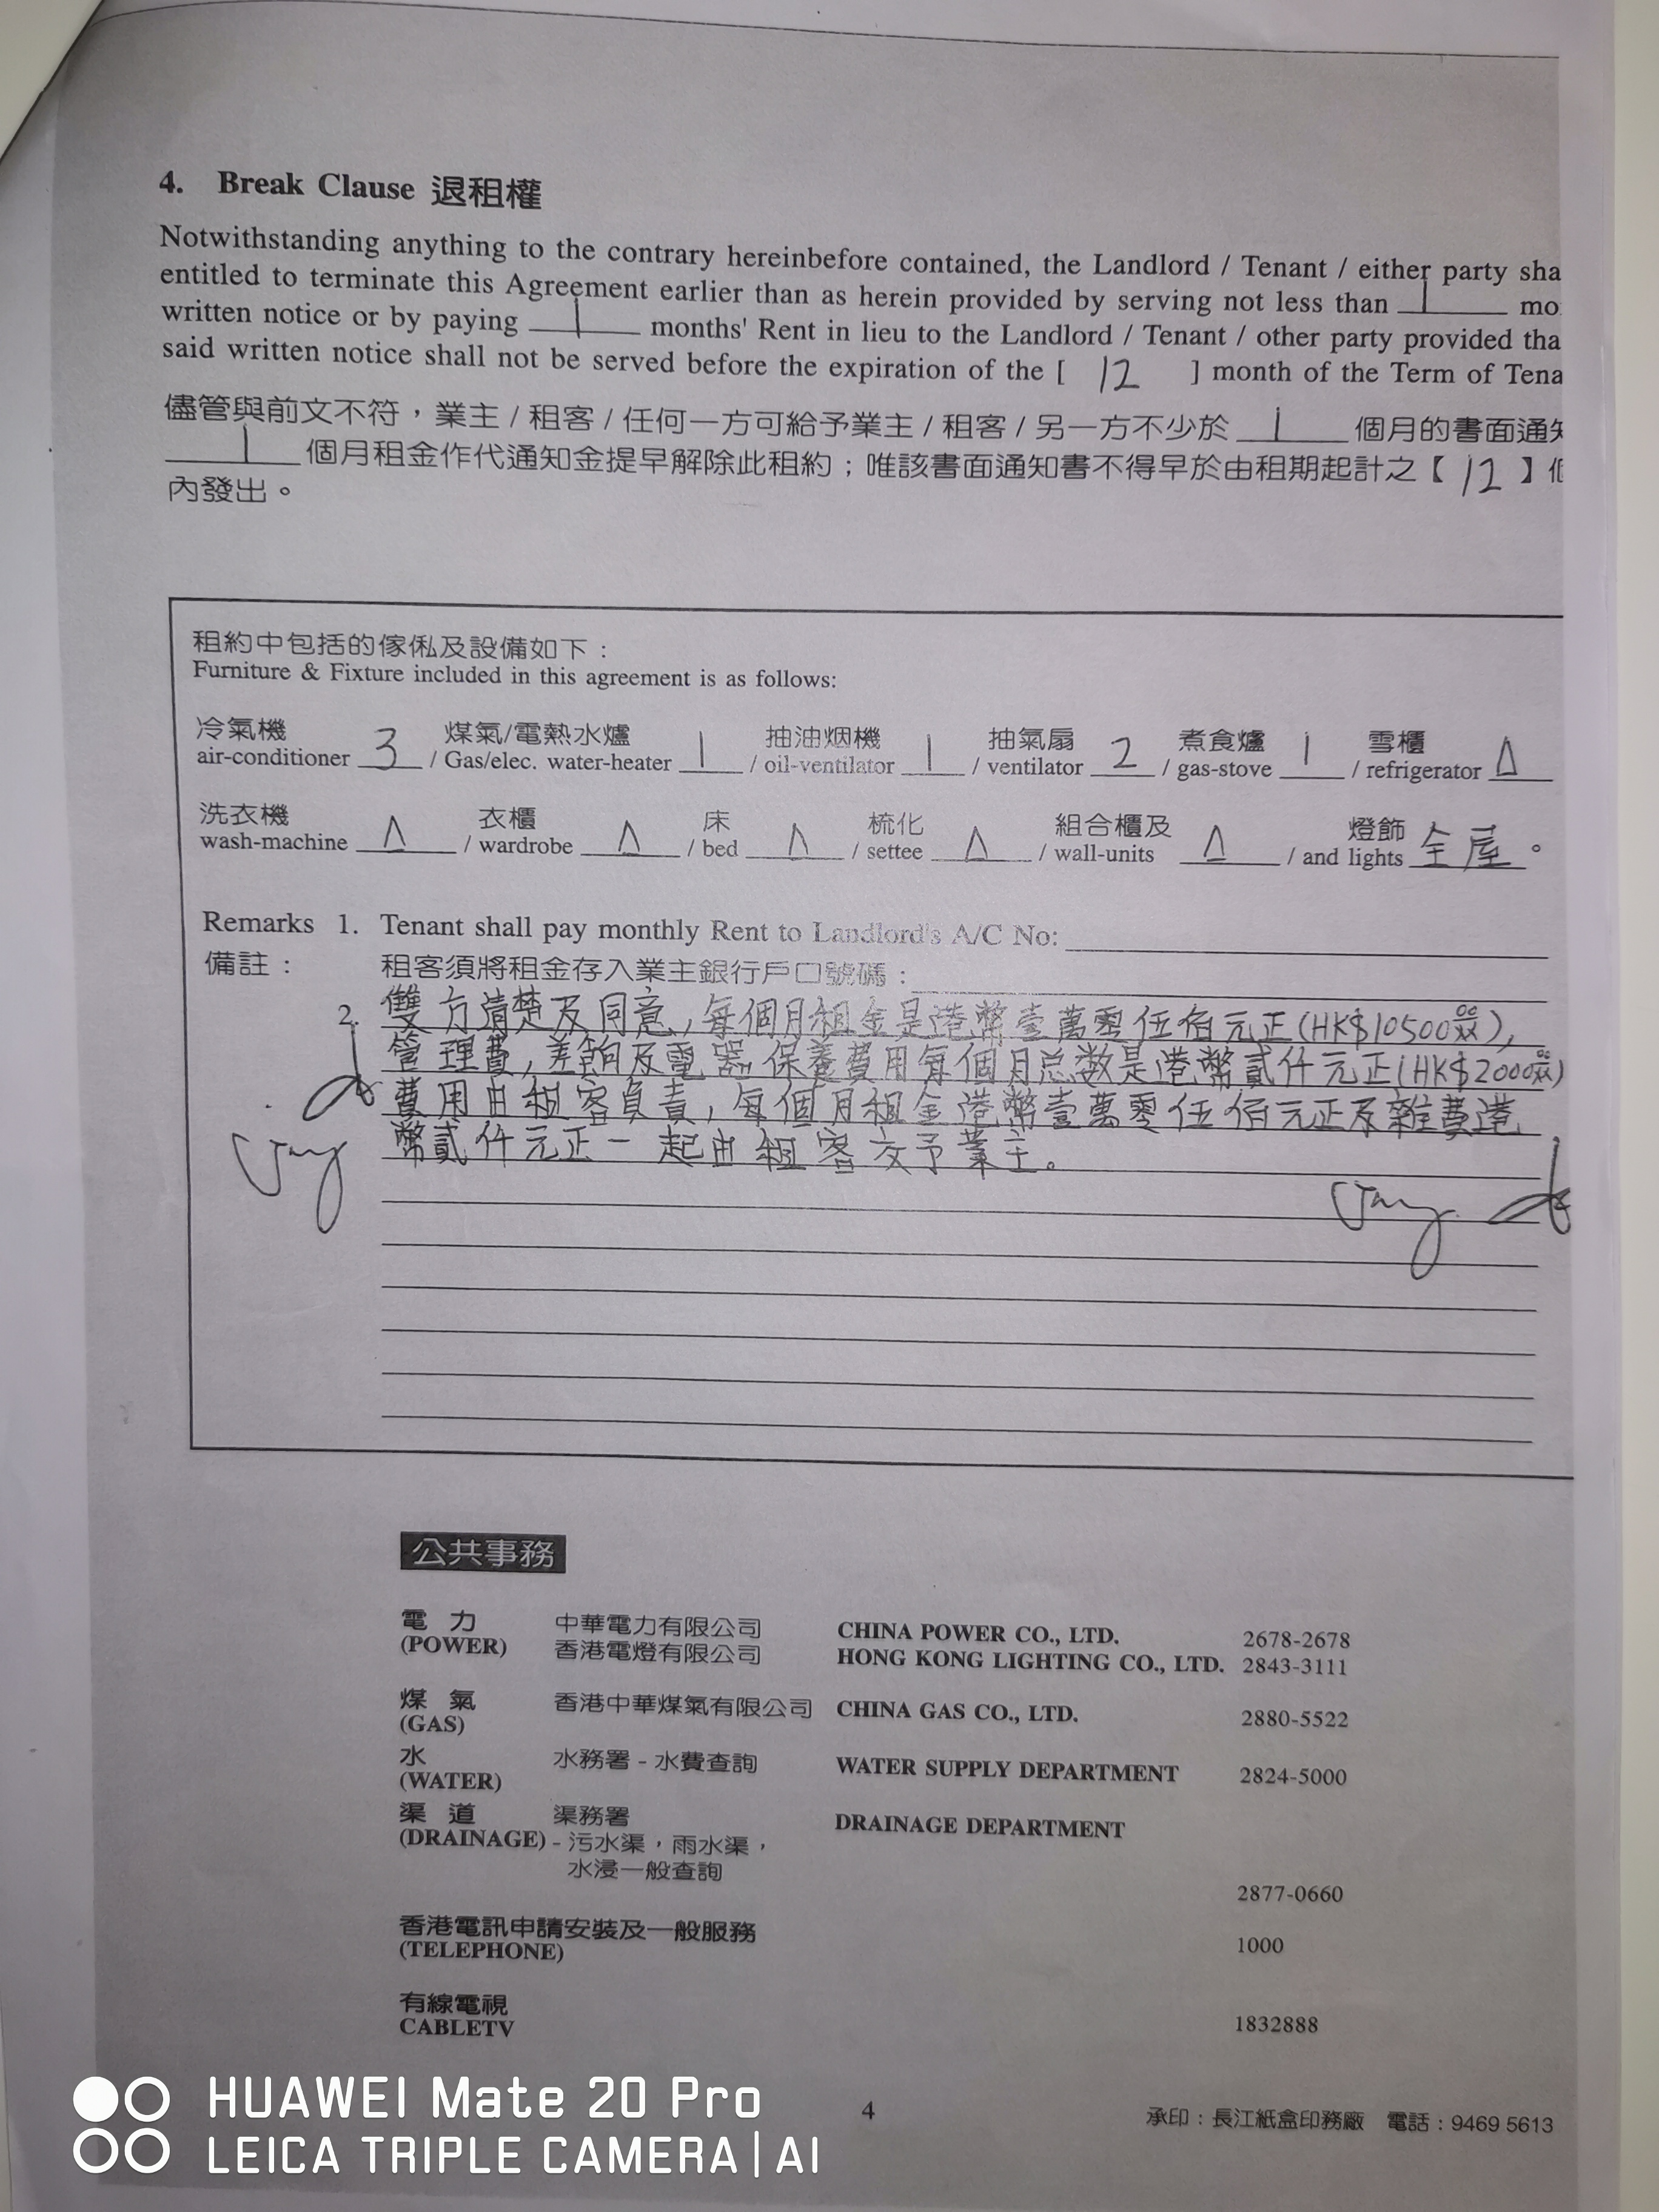 4. Break Clause 退租權
Notwithstanding anything to the contrary hereinbefore contained, the Landlord / Tenant / either party sha
entitled to terminate this Agreement earlier than as herein provided by serving not less than 1 mo
written notice or by paying 1 months' Rent in lieu to the Landlord / Tenant / other party provided tha
said written notice shall not be served before the expiration of the [ 12 ] month of the Term of Tena
儘管與前文不符，業主 / 租客 / 任何一方可給予業主 / 租客 / 另一方不少於 1 個月的書面通知
1 個月租金作代通知金提早解除此租約；唯該書面通知書不得早於由租期起計之【 12 】個
內發出。
租約中包括的傢俬及設備如下：
Furniture & Fixture included in this agreement is as follows:
冷氣機 煤氣/電熱水爐 抽油烟機 抽氣扇 煮食爐 雪櫃
air-conditioner 3 / Gas/elec. water-heater 1 / oil-ventilator 1 / ventilator 2 / gas-stove 1 / refrigerator △
洗衣機 衣櫃 床 梳化 組合櫃及 燈飾
wash-machine △ / wardrobe △ / bed △ / settee △ / wall-units △ / and lights 全屋。
Remarks 1. Tenant shall pay monthly Rent to Landlord's A/C No:
備註： 租客須將租金存入業主銀行戶口號碼：
2. 雙方清楚及同意，每個月租金是港幣壹萬零伍佰元正(HK$10500),
管理費，差餉及電器保養費用每個月总数是港幣貳仟元正(HK$2000)
費用由租客負責，每個月租金港幣壹萬零伍佰元正及雜費港
幣貳仟元正一起由租客交予業主。
公共事務
電 力 中華電力有限公司 CHINA POWER CO., LTD. 2678-2678
(POWER) 香港電燈有限公司 HONG KONG LIGHTING CO., LTD. 2843-3111
煤 氣 香港中華煤氣有限公司 CHINA GAS CO., LTD. 2880-5522
(GAS)
水 水務署 - 水費查詢 WATER SUPPLY DEPARTMENT 2824-5000
(WATER)
渠 道 渠務署 DRAINAGE DEPARTMENT
(DRAINAGE) - 污水渠，雨水渠，
水浸一般查詢
2877-0660
香港電訊申請安裝及一般服務
(TELEPHONE) 1000
有線電視
CABLETV 1832888
4
承印：長江紙盒印務廠 電話：9469 5613
HUAWEI Mate 20 Pro
LEICA TRIPLE CAMERA | AI